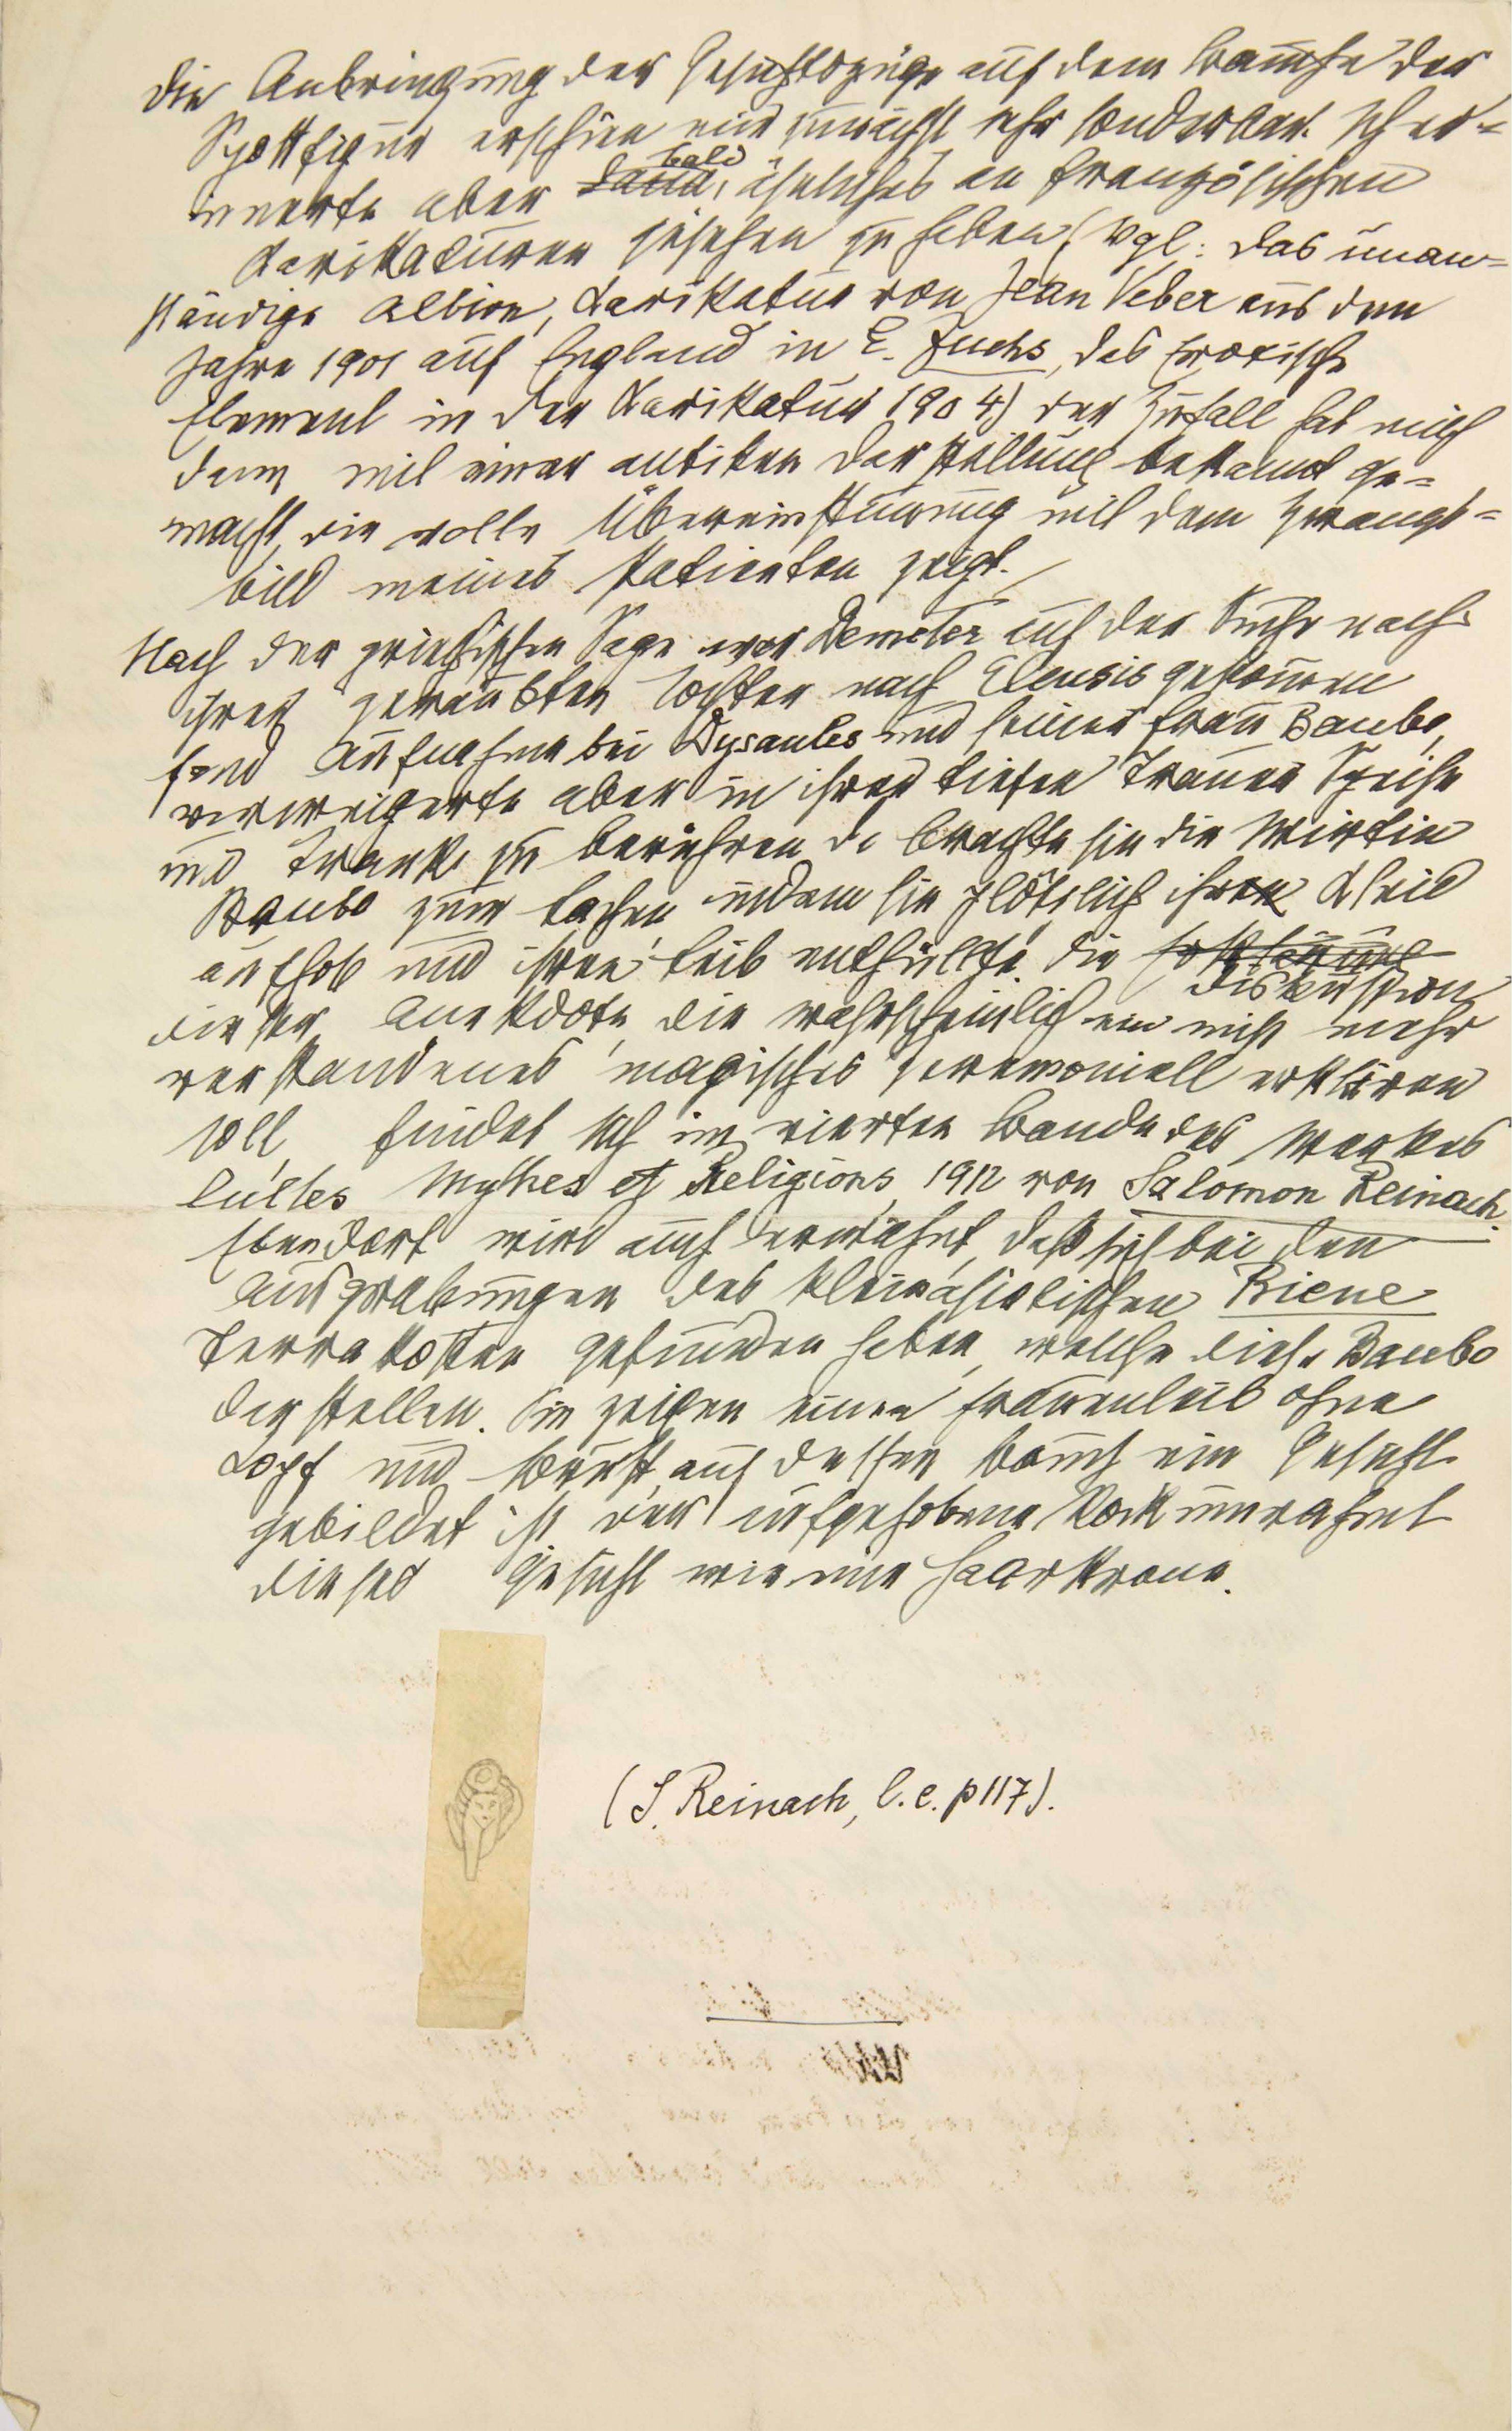 Die Anbringung der Gesichtszüge auf dem Bauche der
Spottfigur erschien mir zunächst sehr sonderbar. Ich er=
innerte aber bald, ähnliches an französischen
Karikaturen gesehen zu haben (Vgl.: Das unan=
ständige Albion, Karikatur von Jean Veber aus dem
Jahre 1901 auf England in E. Fuchs, das Erotische
Element in der Karikatur 1904) Der Zufall hat mich
dann mit einer antiken Darstellung bekannt ge=
macht, die volle Übereinstimmung mit dem Zwangs=
bild meines Patienten zeigt.
Nach der griechischen Sage war Demeter auf der Suche nach
ihrer geraubten Tochter nach Eleusis gekommen
fand Aufnahme bei Dysaules und seiner Frau Baubo,
verweigerte aber in ihrer tiefen Trauer Speise
und Trank zu berühren da brachte sie die Wirtin
Baubo zum Lachen indem sie plötzlich ihr Kleid
aufhob und ihren Leib enthüllte. Die
Diskussion
dieser Anekdote, die wahrscheinlich ein nicht mehr
verstandenes magisches Zeremoniell erklären
soll, findet sich im vierten Bande des Werkes
Cultes Mythes et Religions, 1912 von Salomon Reinach.
Ebendort wird auch erwähnt, daß sich bei den
Ausgrabungen des kleinasiatischen Priene
Terrakotten gefunden haben, welche diese Baubo
darstellen. Sie zeigen einen Frauenleib ohne
Kopf und Brust, auf dessen Bauch ein Gesicht
gebildet ist der aufgehobene Rock umrahmt
dieses Gesicht wie eine Haarkrone.
(S. Reinach, l.c. p 117).